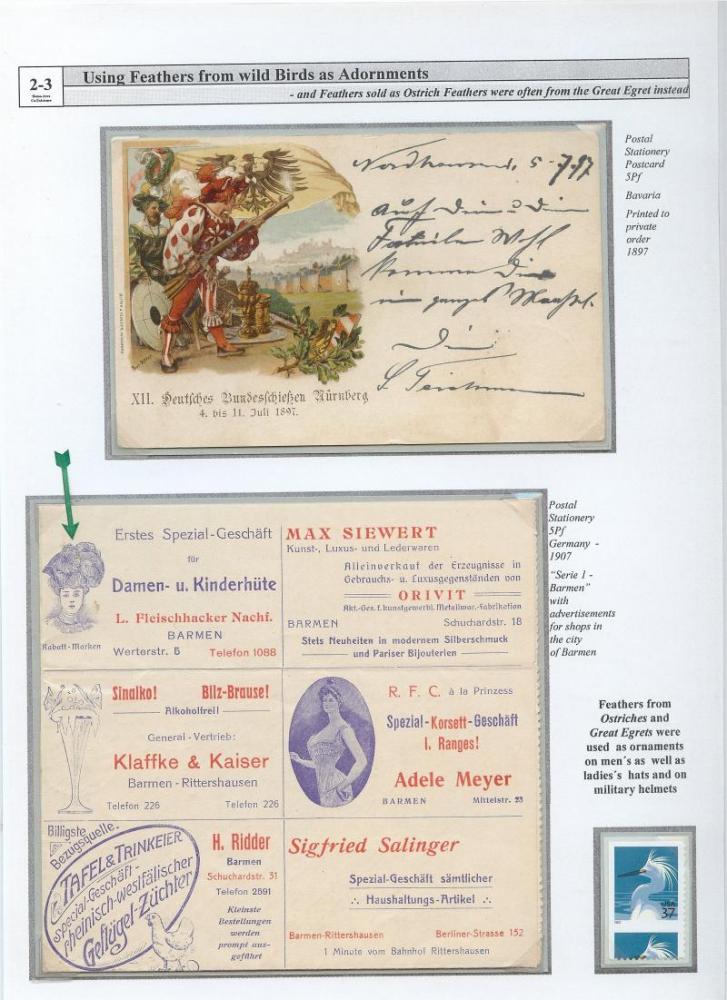 2-3
Using Feathers from wild Birds as Adornments
- and Feathers sold as Ostrich Feathers were often from the Great Egret instead
Postal
Stationery
Postcard
5Pf
Bavaria
Printed to
private
order
1897
XII. Deutsches Bundesschießen Nürnberg
4. bis 11. Juli 1897.
Postal
Stationery
5Pf
Germany -
1907
"Serie 1 -
Barmen"
with
advertisements
for shops in
the city
of Barmen
Erstes Spezial-Geschäft
für
Damen- u. Kinderhüte
L. Fleischhacker Nachf.
BARMEN
Rabatt-Marken
Werterstr. 5 Telefon 1088
MAX SIEWERT
Kunst-, Luxus- und Lederwaren
Alleinverkauf der Erzeugnisse in
Gebrauchs- u. Luxusgegenständen von
ORIVIT
Akt.-Ges. f. kunstgewerbl. Metallwar.-Fabrikation
BARMEN Schuchardstr. 18
Stets Neuheiten in modernem Silberschmuck
und Pariser Bijouterien
Sinalko! Bilz-Brause!
Alkoholfrei!
General-Vertrieb:
Klaffke & Kaiser
Barmen-Rittershausen
Telefon 226 Telefon 226
R. F. C. à la Prinzess
Spezial-Korsett-Geschäft
I. Ranges!
Adele Meyer
BARMEN Mittelstr. 23
Billigste
Bezugsquelle.
TAFEL & TRINKEIER
Special-Geschäft-
rheinisch-westfälischer
Geflügel-Züchter
H. Ridder
Barmen
Schuchardstr. 31
Telefon 2591
Kleinste
Bestellungen
werden
prompt aus-
geführt
Sigfried Salinger
Spezial-Geschäft sämtlicher
∴ Haushaltungs-Artikel ∴
Barmen-Rittershausen Berliner-Strasse 152
1 Minute vom Bahnhof Rittershausen
Feathers from
Ostriches and
Great Egrets were
used as ornaments
on men´s as well as
ladies´s hats and on
military helmets
USA
37